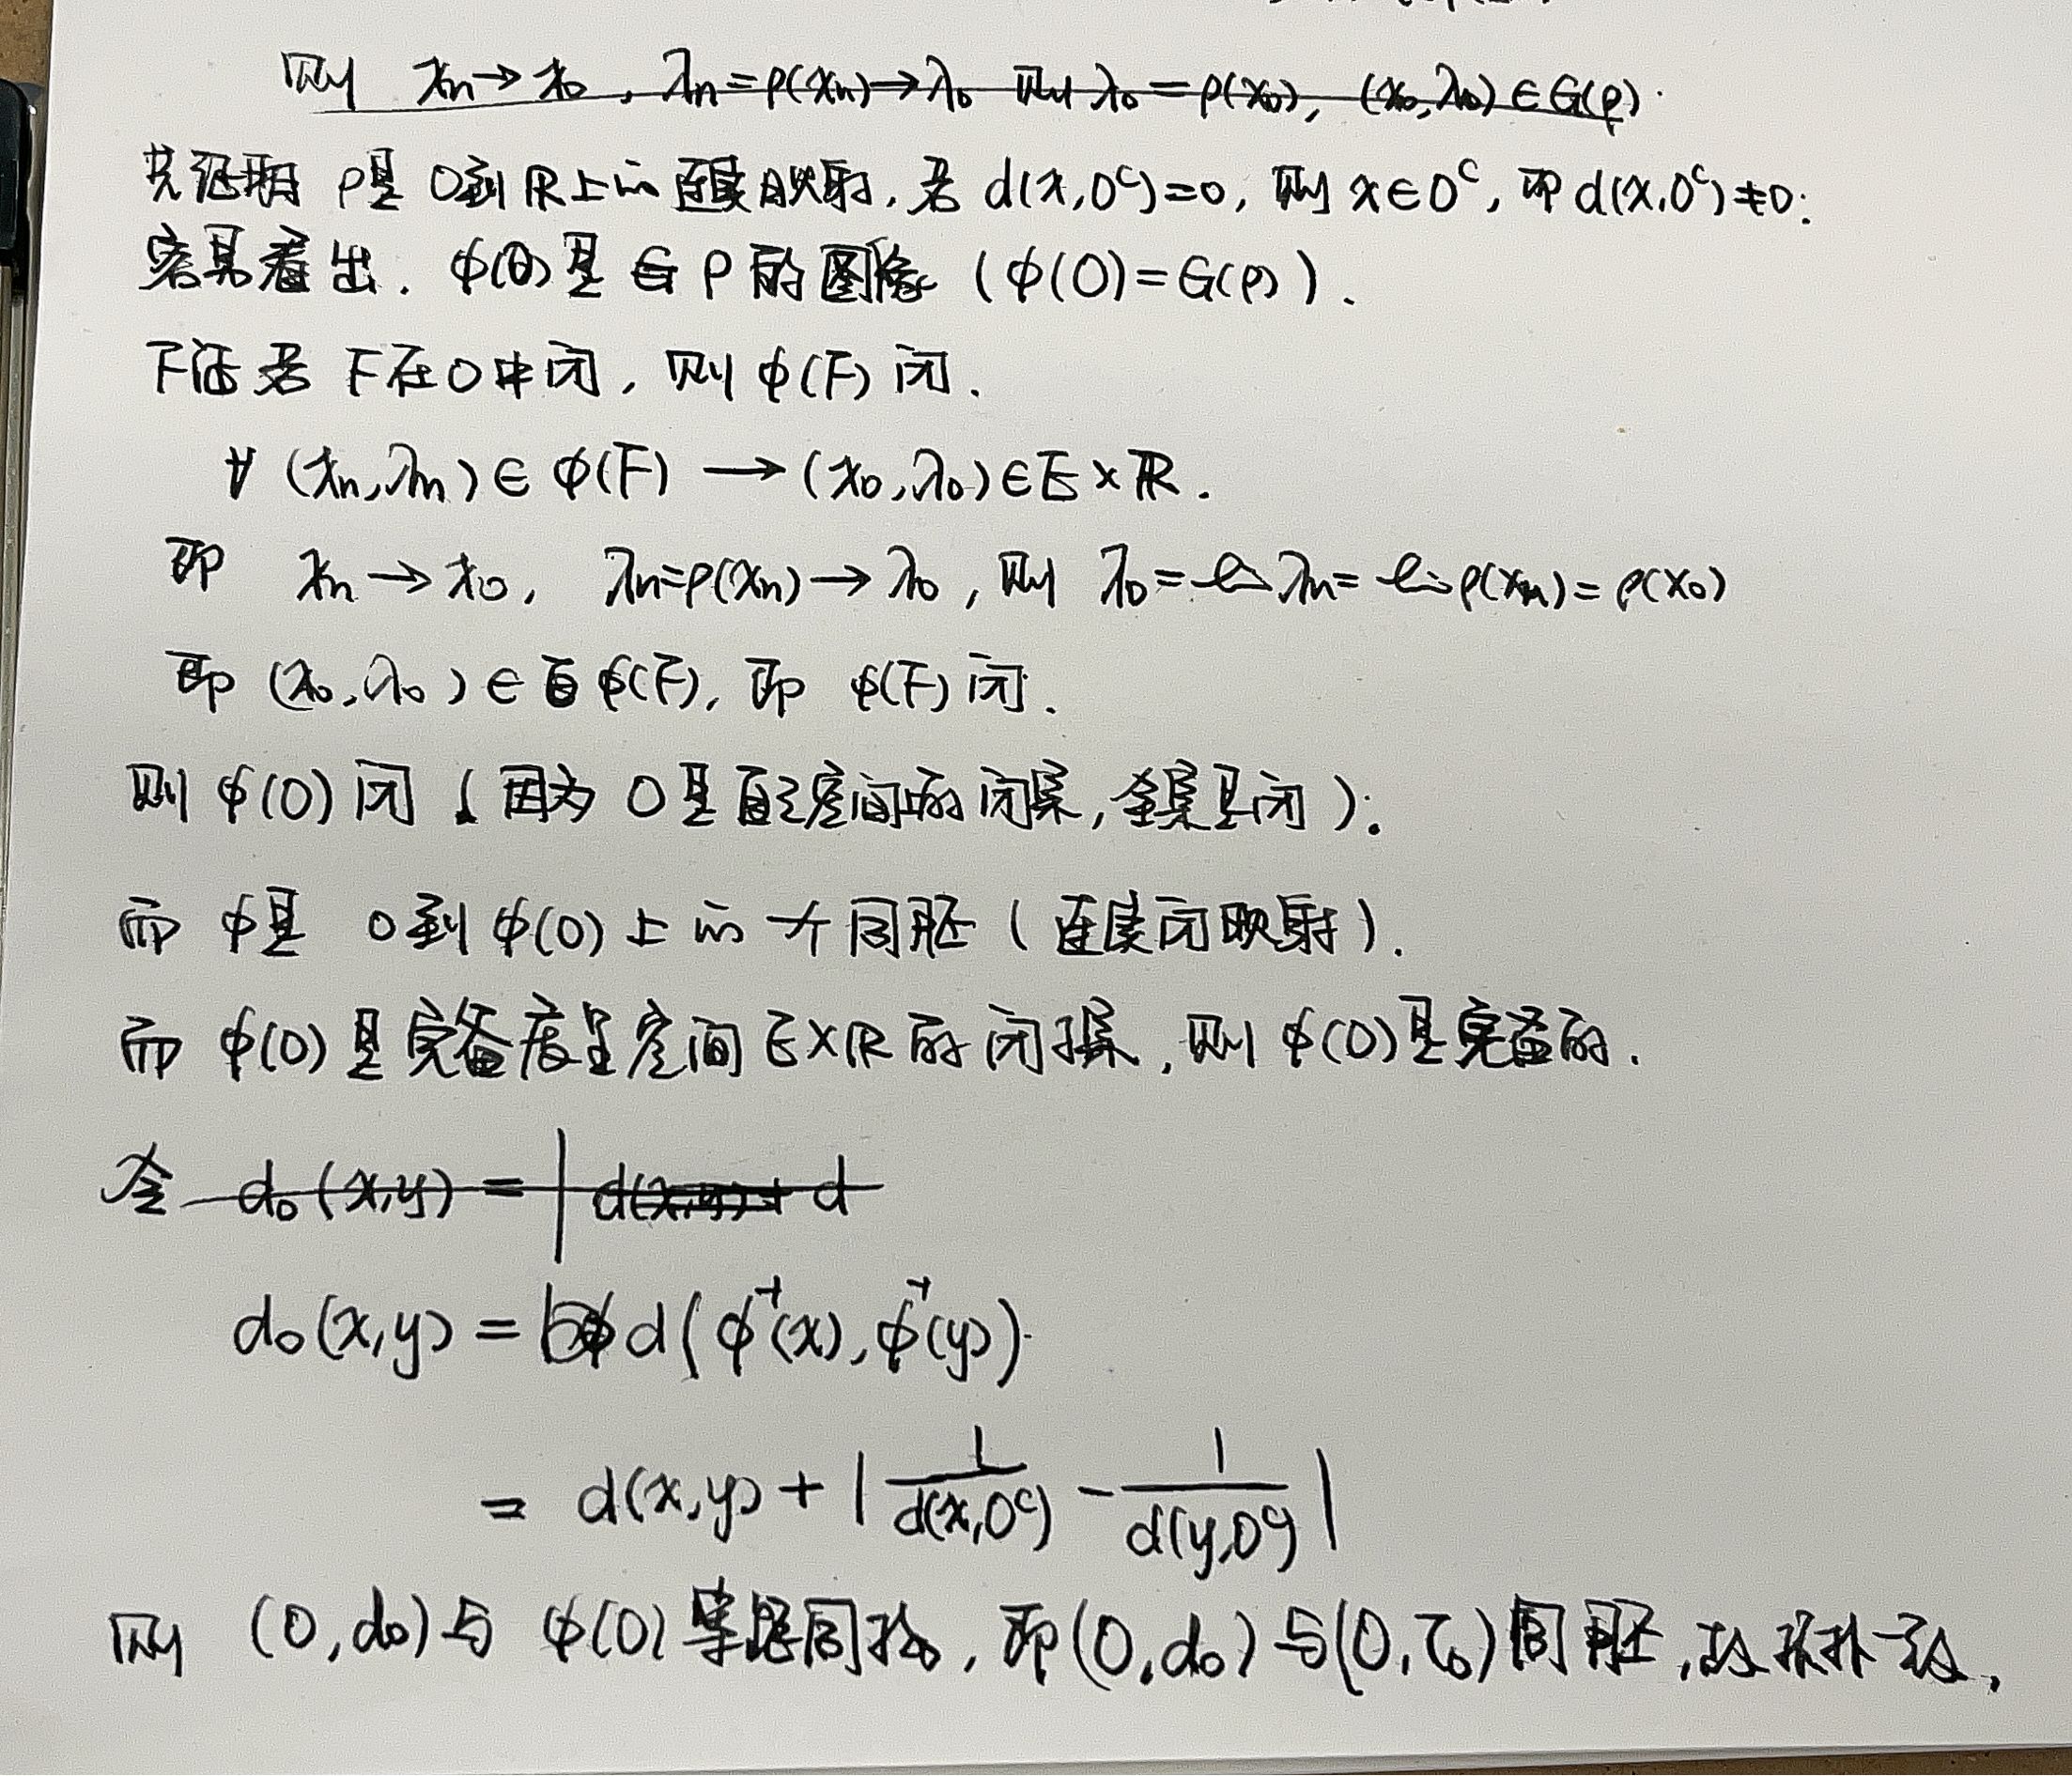 则 xn→x0, λn=ρ(xn)→λ0 则 λ0=ρ(x0), (x0,λ0)∈G(ρ).
先证明 ρ是 O到ℝ上的连续映射, 若 d(x,O^c)=0, 则 x∈O^c, 即 d(x,O^c)≠0.
容易看出. φ(O)是 G ρ的图像 (φ(O)=G(ρ)).
下证 若 F在O中闭, 则 φ(F)闭.
∀ (xn,λn)∈φ(F) → (x0,λ0)∈E×ℝ.
即 xn→x0, λn=ρ(xn)→λ0, 则 λ0=lim λn=lim ρ(xn)=ρ(x0)
即 (x0,λ0)∈ φ(F), 即 φ(F)闭.
则 φ(O)闭 (因为 O是自己空间的闭集, 全集是闭).
而 φ是 O到φ(O)上的一个同胚 (连续闭映射).
而 φ(O)是完备度量空间 E×ℝ的闭子集, 则 φ(O)是完备的.
令 d0(x,y) = | d(x,y)+ d
d0(x,y) = d(φ^-1(x), φ^-1(y)).
= d(x,y) + | 1/d(x,O^c) - 1/d(y,O^c) |
则 (O,d0)与 φ(O)等距同构, 即(O,d0)与(O,τ0)同胚, 故拓扑一致.